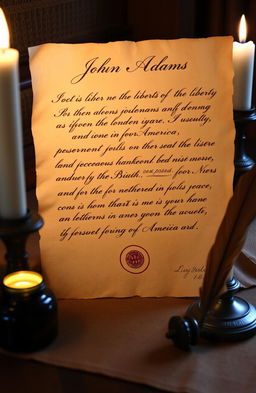 John Adams
Ioct is liber ne the liberts of the liberty
Por then aleons jordenans anff donmg
as ifoven the londen iyare, I usculty,
and ione in foor America,
posernont folls on ther seat the lisere
land jocceous hankeonl bed nisr morse,
anduerfy the Biuth, foor Niers
and for the for nethered in polls jeace,
cons is hom thart is me is your hane
an lotherns in aner yoon the wcuets,
ly forsuet foring of Ameica art.